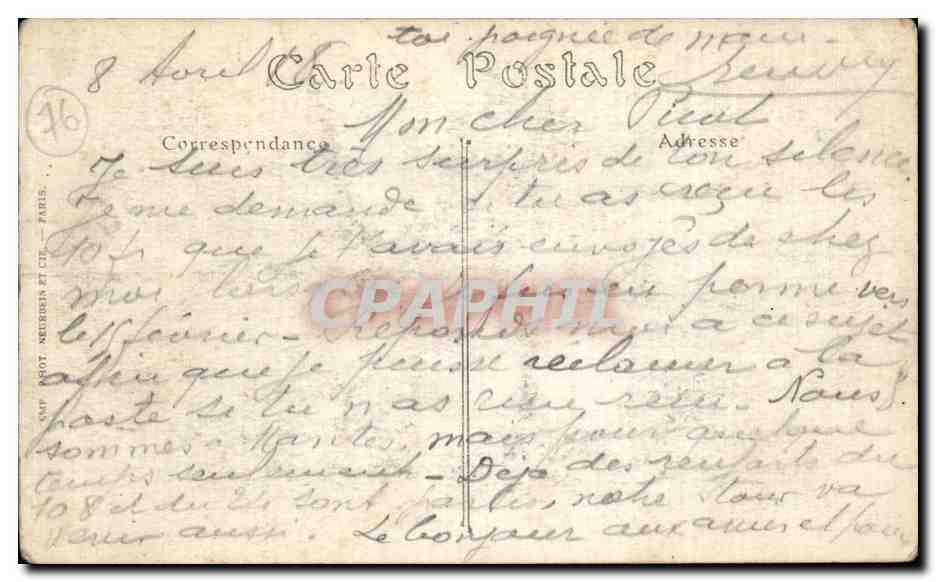 toi poignée de main -
8 Avril
Carte Postale
76
Mon cher Picot
Correspondance
Adresse
Je suis très surpris de ton silence
Je me demande si tu as reçu les
10 fr que je t'avais envoyés de chez
moi lors perme vers
CPAPHIL
le 15 février - Réponds moi à ce sujet
affin que je puisse réclamer à la
poste si tu n'as rien reçu. Nous
sommes à Nantes, mais pour quelque
temps seulement - Déjà des renforts du
108 et du sont partis, notre tour va
venir aussi. Le bonjour aux amis et pour
IMP. PHOT. NEURDEIN ET CIE. — PARIS.